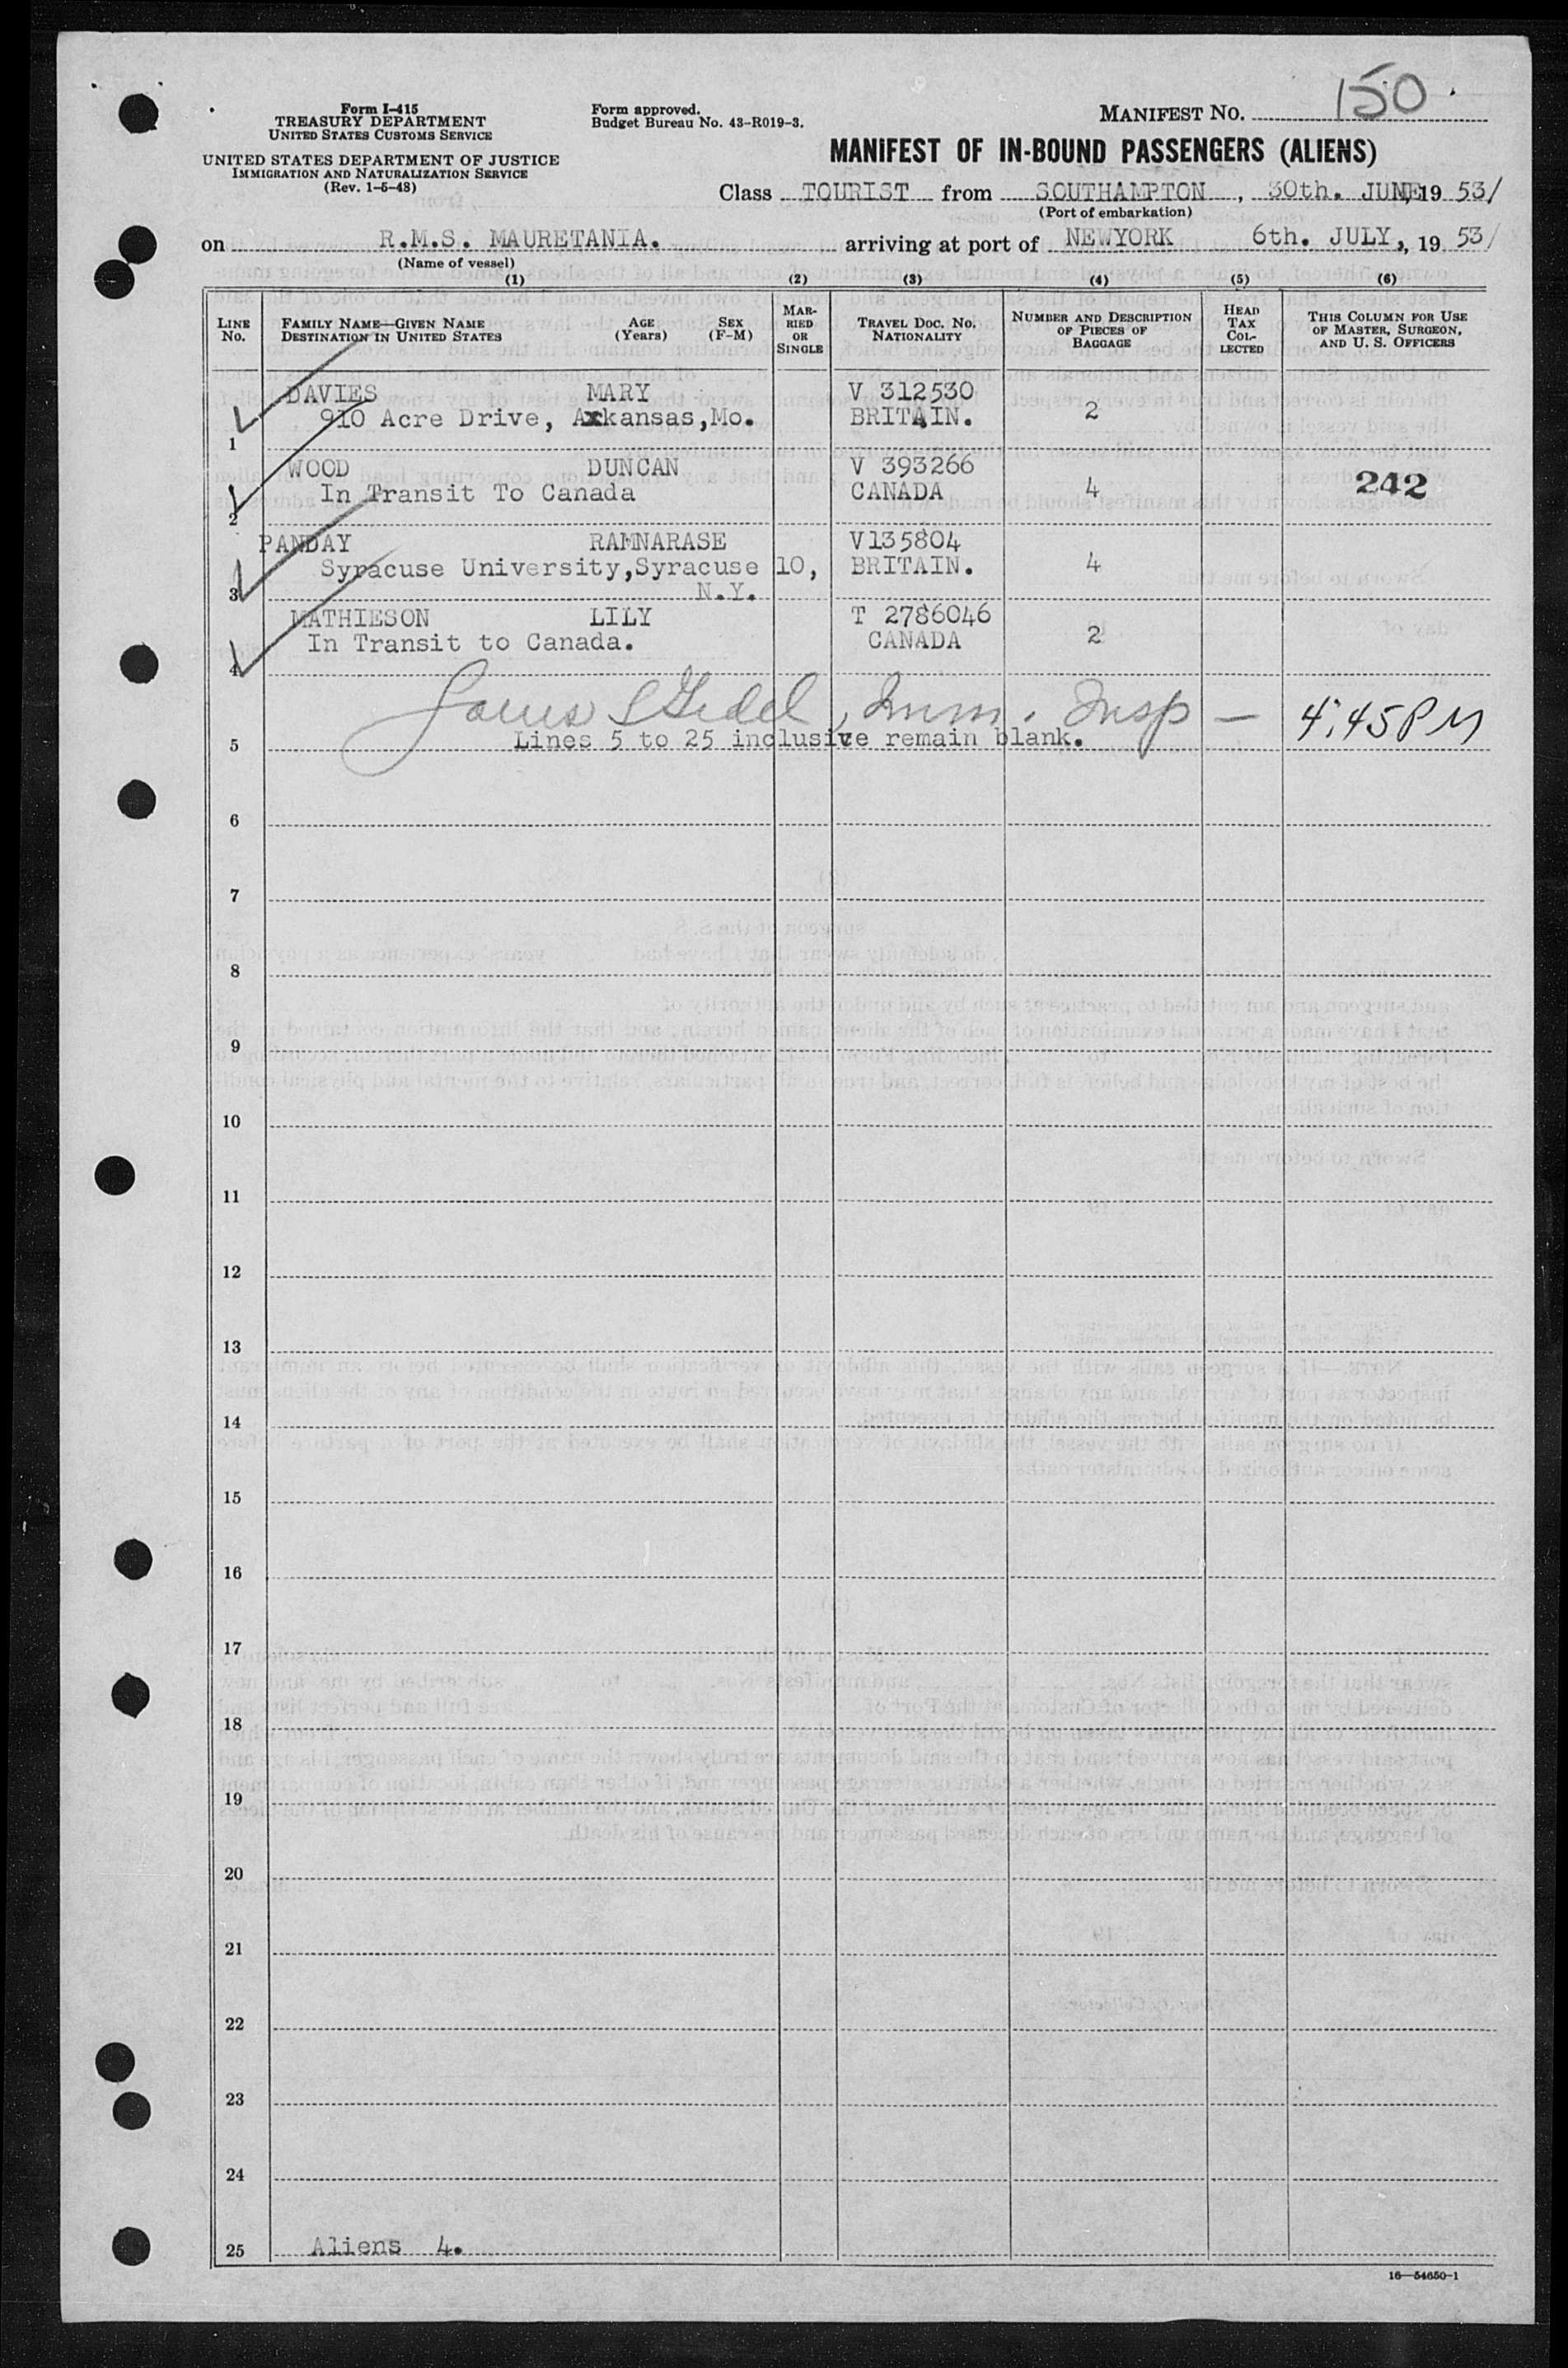 150
Form I-415
TREASURY DEPARTMENT
UNITED STATES CUSTOMS SERVICE
UNITED STATES DEPARTMENT OF JUSTICE
IMMIGRATION AND NATURALIZATION SERVICE
(Rev. 1-5-48)
Form approved.
Budget Bureau No. 43-R019-3.
MANIFEST NO.
MANIFEST OF IN-BOUND PASSENGERS (ALIENS)
Class TOURIST from SOUTHAMPTON, 30th. JUNE, 19 53/
(Port of embarkation)
on R.M.S. MAURETANIA. arriving at port of NEWYORK 6th. JULY,, 19 53/
(Name of vessel)
(1) (2) (3) (4) (5) (6)
LINE No.
FAMILY NAME—GIVEN NAME
DESTINATION IN UNITED STATES
AGE (Years)
SEX (F-M)
MARRIED OR SINGLE
TRAVEL DOC. NO. NATIONALITY
NUMBER AND DESCRIPTION OF PIECES OF BAGGAGE
HEAD TAX COLLECTED
THIS COLUMN FOR USE OF MASTER, SURGEON, AND U. S. OFFICERS
DAVIES MARY V 312530
1 910 Acre Drive, Arkansas, Mo. BRITAIN. 2
WOOD DUNCAN V 393266
2 In Transit To Canada CANADA 4 242
PANDAY RAMNARASE V135804
3 Syracuse University, Syracuse 10, BRITAIN. 4
N.Y.
MATHIESON LILY T 2786046
4 In Transit to Canada. CANADA 2
Imm. Insp — 4:45 PM
5 Lines 5 to 25 inclusive remain blank.
6
7
8
9
10
11
12
13
14
15
16
17
18
19
20
21
22
23
24
25 Aliens 4.
16—54650-1